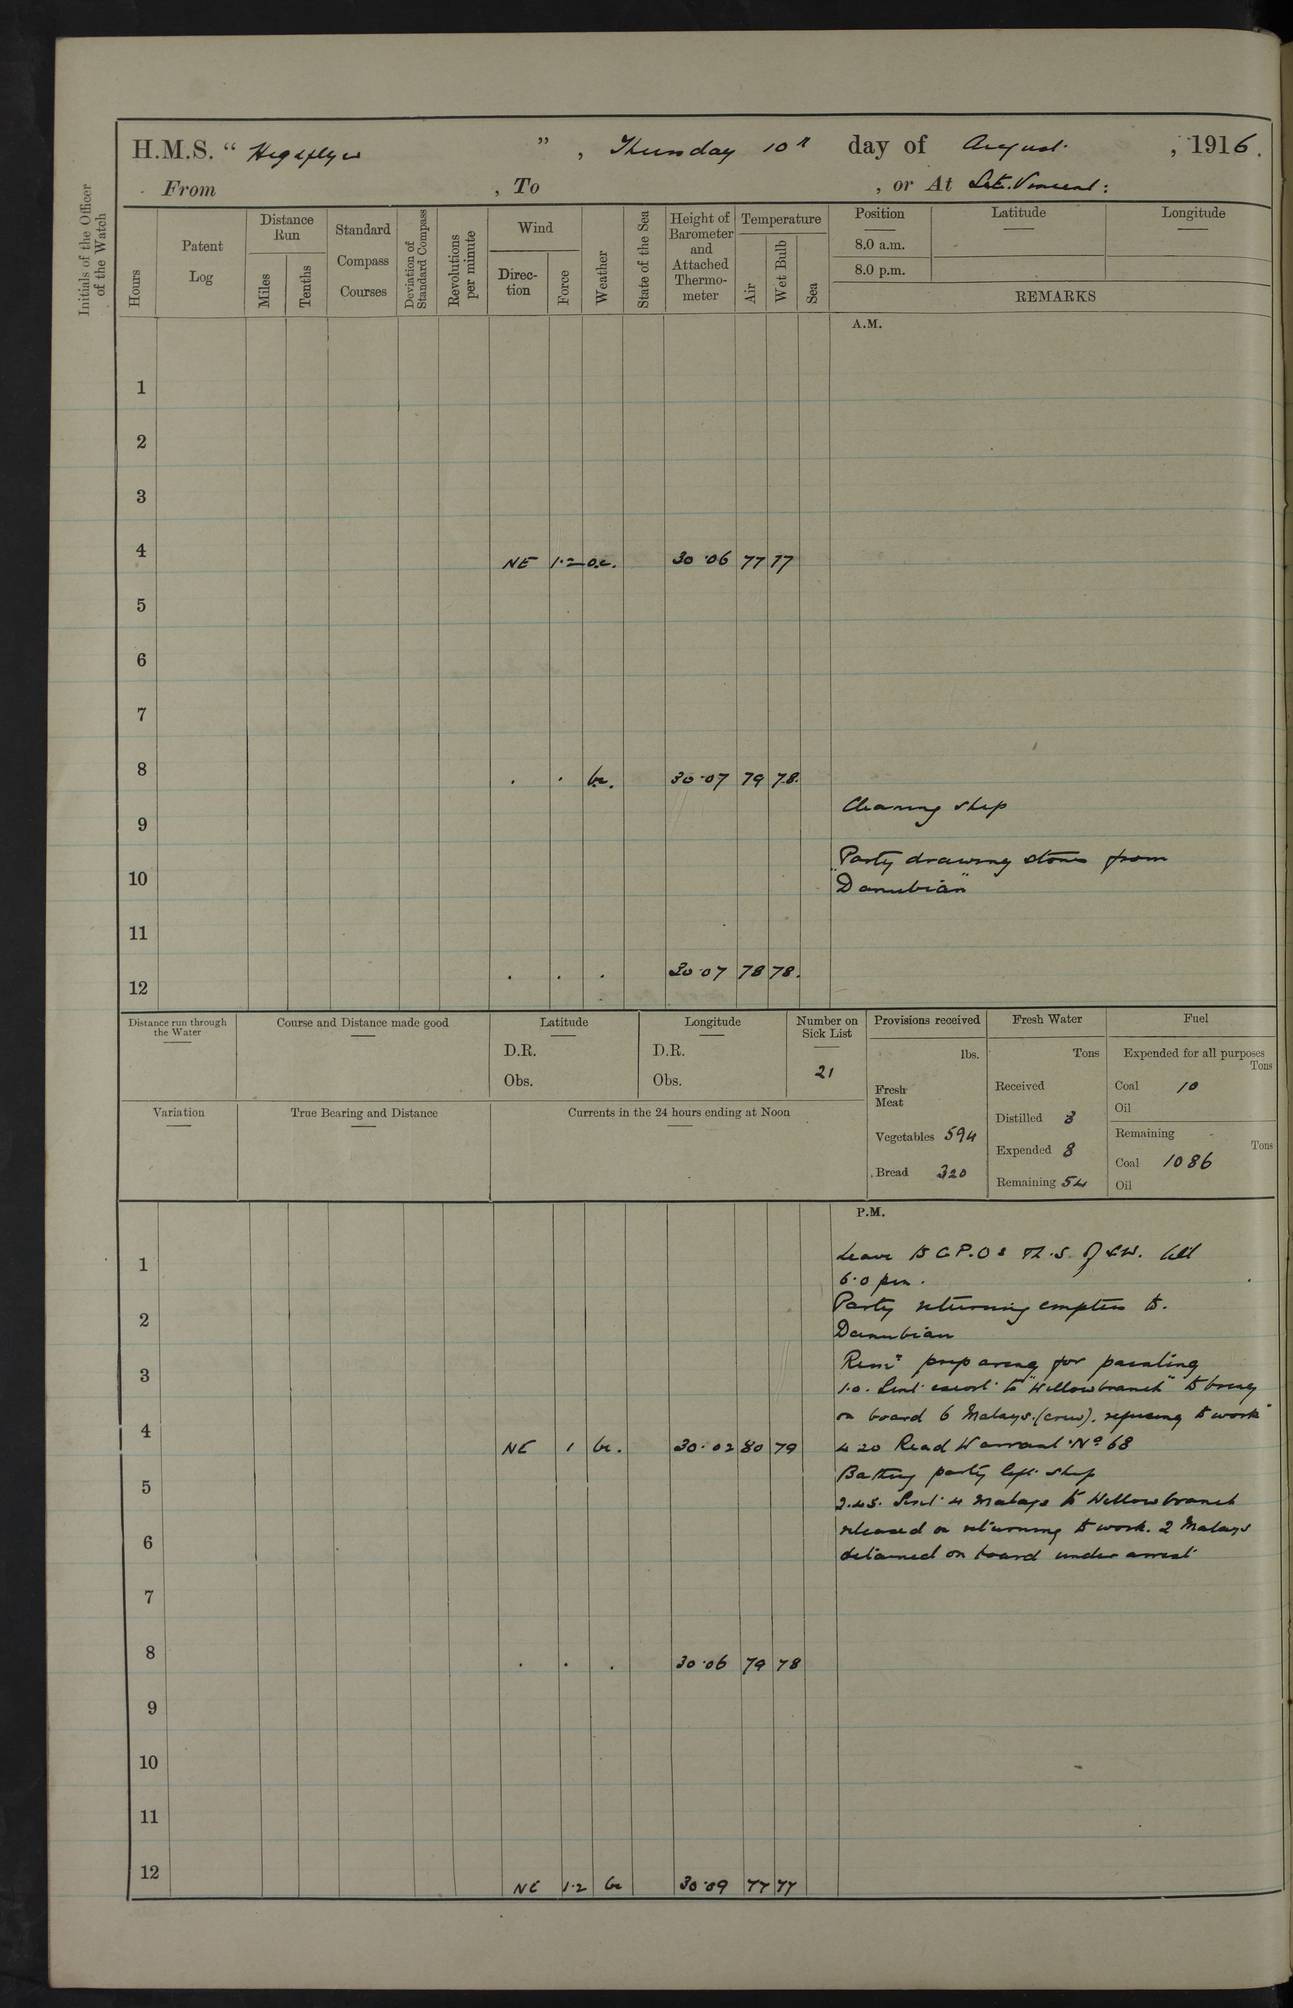 H.M.S. “ Highflyer ” , Thursday 10th day of August , 1916.
From , To , or At St. Vincent:
Initials of the Officer of the Watch
Hours
Patent Log
Distance Run
Miles
Tenths
Standard Compass Courses
Deviation of Standard Compass
Revolutions per minute
Wind
Direc-tion
Force
Weather
State of the Sea
Height of Barometer and Attached Thermo-meter
Temperature
Air
Wet Bulb
Sea
Position Latitude Longitude
8.0 a.m.
8.0 p.m.
REMARKS
A.M.
1
2
3
4 NE 1.2 o.c. 30.06 77 77
5
6
7
8 . . bc. 30.07 79 78.
Cleaning ship
9
Party drawing stores from
10 "Danubian"
11
12 . . . 30.07 78 78.
Distance run through the Water
Course and Distance made good
Latitude
D.R.
Obs.
Longitude
D.R.
Obs.
Number on Sick List
21
Provisions received
lbs.
Fresh Meat
Vegetables 594
Bread 320
Fresh Water
Tons
Received
Distilled 3
Expended 8
Remaining 54
Fuel
Expended for all purposes
Tons
Coal 10
Oil
Remaining
Tons
Coal 1086
Oil
Variation
True Bearing and Distance
Currents in the 24 hours ending at Noon
P.M.
Leave to C.P.Os till
1 6.0 pm.
Party returning empties to.
2 Danubian
Remr preparing for painting
3 1.0. Sent escort to "Willowbranch" to bring
on board 6 Malays. (crew). refusing to work"
4 NE 1 bc. 30.02 80 79 4 20 Read Warrant No 68
Bathing party left ship
5 2.45. Sent 4 Malays to Willowbranch
released on returning to work. 2 Malays
6 detained on board under arrest
7
8 . . . 30.06 79 78
9
10
11
12 NE 1.2 bc 30.09 77 77